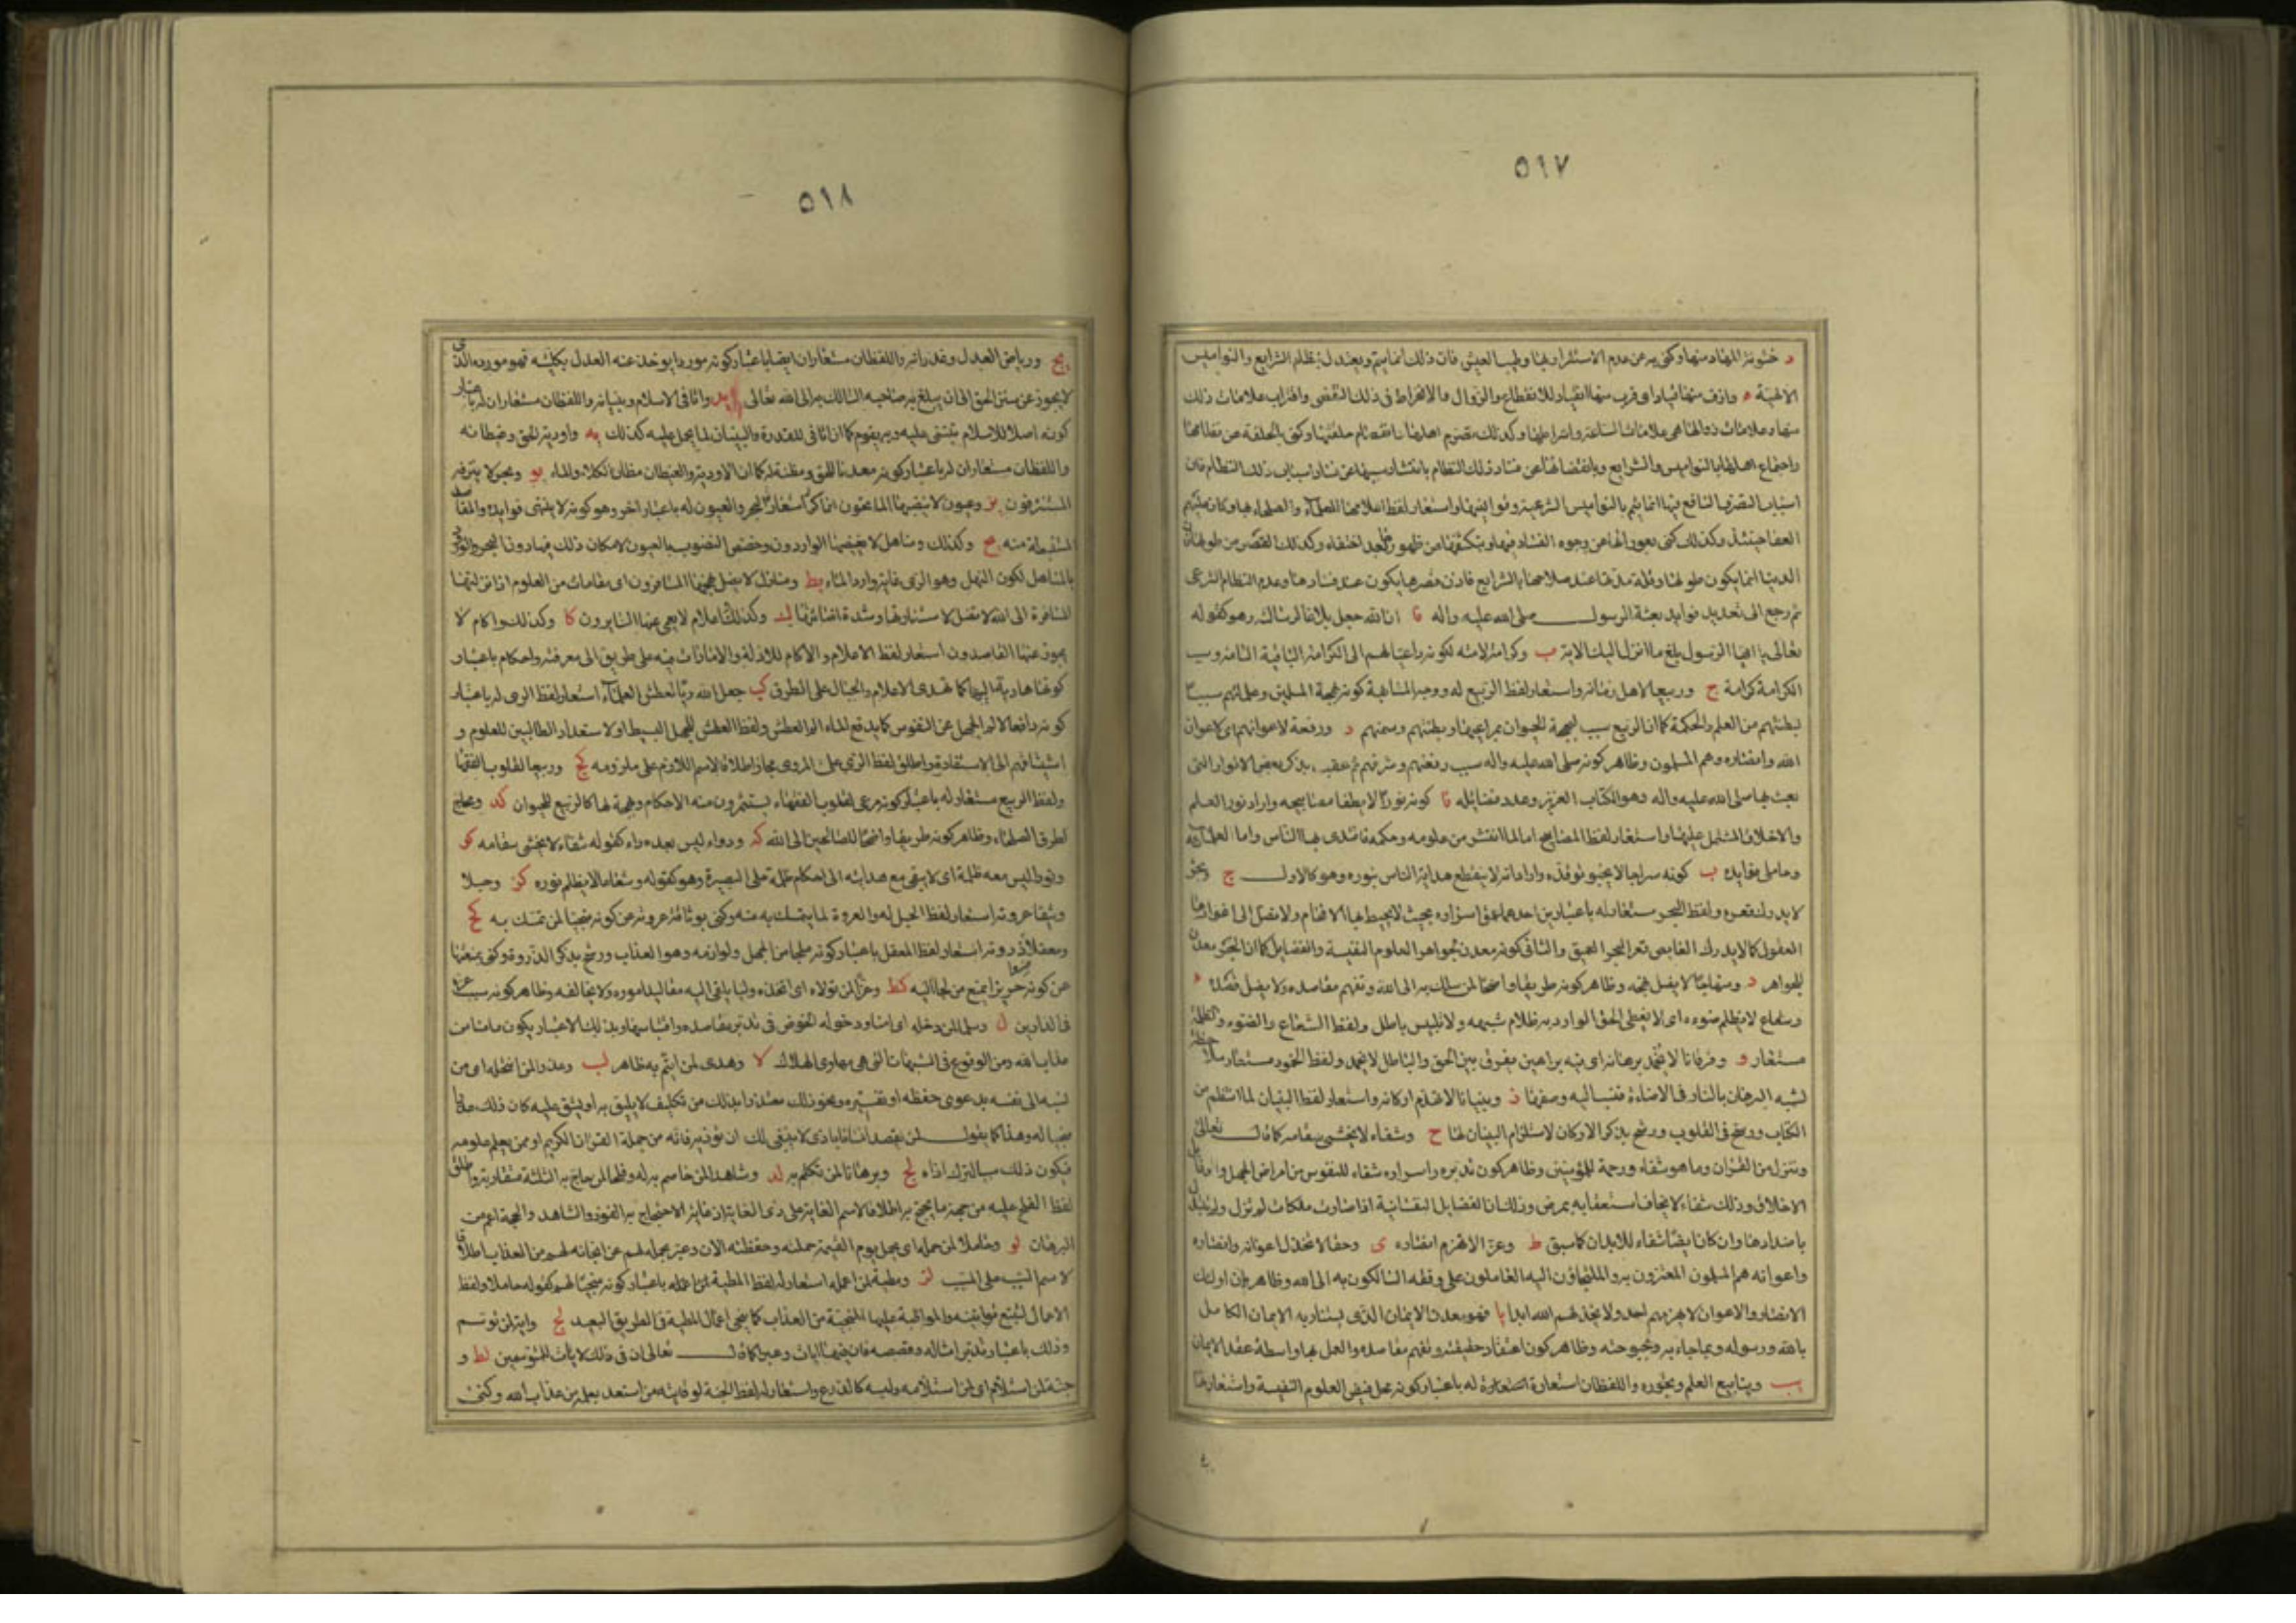 ٥١٧
د خشونة المهاد منها وكنى به عن عدم الاستقرار بها وطيب العيش فان ذلك انما يتم ويعتدل بنظام الشرايع والنواميس
الالهية ه وازف منها قياد اى قرب منها انقياد للانقطاع والزوال والانخراط فى ذلك التقضى واقتراب علامات ذلك
منها وعلامات زوالها هى علامات الساعة واشراطها وكذلك تصرم اهلها وانفصام حلقتها وكنى بالحلقة عن نظامها
واجتماع اهلها بالنواميس والشرايع وبانفصامها عن فساد ذلك النظام بانتشار سببها عن فساد اسباب ذلك النظام فان
اسباب التصرف النافع فيها انما يتم بالنواميس الشرعية وقوانينها واستعار لفظ اعلامها للعلماء والصلحاء بها وكان عليهم
العفا حينئذ وكذلك كنى بعوراتها عن وجوه الفساد فيها وبتكشفها من ظهوره بعد اختفاء وكذلك القصر من طولها فان
الدنيا انما يكون طولها وقلة مدتها عند صلاحها بالشرايع فاذن قصرها يكون عند فسادها وعدم النظام الشرعى
ثم رجع الى تعديد فوايد بعثة الرسول صلى الله عليه واله ا ان الله جعل بلاغا لرسالته وهو كقوله
تعالى يا ايها الرسول بلغ ما انزل اليك الاية ب وكرامة لامته لكونه داعيا لهم الى الكرامة الباقية التامة وسبب
الكرامة كرامة ج وربيعا لاهل زمانه واستعار لفظ الربيع له ووجه المشابهة كونه بهجة المسلمين وعلمائهم سببا
لبطنتهم من العلم والحكمة كما ان الربيع سبب لبهجة الحيوان بمراعيها وبطنتهم وسمنهم د ورفعة لاعوانه اى لاعوان
الله وانصاره وهم المسلمون وظاهر كونه صلى الله عليه واله سبب رفعتهم وشرفهم ثم عقبه بذكر بعض الانوار التى
بعث بها صلى الله عليه واله وهو الكتاب العزيز وعدد فضائله ا كونه نورا لا يطفا مصابيحه واراد نور العلم
والاخلاق المشتمل عليها واستعار لفظ المصابيح اما لما انتشر من علومه وحكمه فاقتدى بها الناس واما لعلمائه
وحاملى فوايده ب كونه سراجا لا يخبو توقده واراد انه لا ينقطع هداية الناس بنوره وهو كالاول ج وبحر
لا يدرك قعره ولفظ البحر مستعار له باعتبارين احدهما عمق اسراره بحيث لا يحيط بها الافهام ولا تصل الى اغوارها
العقول كما لا يدرك الغايص قعر البحر العميق والثانى كونه معدن لجواهر العلوم النفيسة والفضايل كما ان البحر معدن
للجواهر د ومنهاجا لا يضل نهجه وظاهر كونه طريقا واضحا لمن سلك به الى الله وتفهم مقاصده ولا يضل قصده ه
وشعاع لا يظلم ضوءه اى لا يغطى الحق الوارد به ظلام شبهة ولا تلبيس باطل ولفظ الشعاع والضوء والظلمة
مستعار و وفرقانا لا يخمد برهانه اى فيه براهين تفرق بين الحق والباطل لا يخمد ولفظ الخمود مستعار ملاحظة
لشبه البرهان بالنار فى الاضاءة فنسبه اليه وصفها ز وبنيانا لا تنهدم اركانه واستعار لفظ البنيان لما انتظم من
الكتاب ورسخ فى القلوب ورشح بذكر الاركان لاستلزام البنيان لها ح وشفاء لا يخشى سقامه كما قال تعالى
وننزل من القران ما هو شفاء ورحمة للمؤمنين وظاهر كون تدبره واسراره شفاء للنفوس من امراض الجهل ورذايل
الاخلاق وذلك شفاء لا يخاف استعقابه بمرض وذلك ان الفضايل النفسانية اذا صارت ملكات لم تزل ولم تبدل
باضدادها وان كان ايضا شفاء للابدان كما سبق ط وعزا لا تهزم انصاره ى وحقا لا تخذل اعوانه وانصاره
واعوانه هم المسلمون المعتزون به والملتجئون اليه العاملون على وفقه السالكون به الى الله وظاهر ان اولئك
الانصار والاعوان لا يهزمهم احد ولا يخذلهم الله ابدا يا فهو معدن الايمان الذى يستثار به الايمان الكامل
بالله ورسوله وبما جاء به وبحبوحته وظاهر كون اعتقاد حقيقته وتفهم مقاصده والعمل بها واسطة عقد الايمان
يب وينابيع العلم وبحوره واللفظان استعارة له باعتبار كونه محل فيض العلوم النفيسة واستفادتها
٥١٨
يج ورياض العدل وغدرانه واللفظان مستعاران ايضا باعتبار كونه موردا يوخذ عنه العدل بكليته فهو مورده الذى
لا يجوز عن سنن الحق الى ان يبلغ به صاحبه السالك به الى الله تعالى يد واثافى الاسلام وبنيانه واللفظان مستعاران له باعتبار
كونه اصلا للاسلام يبتنى عليه وبه يقوم كما ان اثافى للقدر والبنيان لما يحمل عليه كذلك يه واودية الحق وغيطانه
واللفظان مستعاران له باعتبار كونه معدنا للحق ومظنة له كما ان الاودية والغيطان مظان الكلاء والماء يو وبحر لا ينزفه
المستنزفون يز وعيون لا ينضبها الماتحون انما كرر استعارة البحر والعيون له باعتبار اخر وهو كونه لا ينتهى فوايده والمقاصد
المستنبطة منه يح وكذلك ومناهل لا يغيضها الواردون وخصص النضوب بالعيون لامكان ذلك فيها دون البحر والورود
بالمناهل لكون النهل وهو الرى غاية وارد الماء يط ومنازل لا يضل نهجها المسافرون اى مقامات من العلوم اذا نزلتها
المسافرة الى الله لا تضل لاستنارتها وشدة اضائتها ك وكذلك اعلام لا يعمى عنها السايرون كا وكذلك واكام لا
يجوز عنها القاصدون استعار لفظ الاعلام والاكام للادلة والامارات فيه على طريق الى معرفته واحكام باعتبار
كونها هادية اليها كما تهدى الاعلام والجبال على الطرق كب جعل الله ريا لعطش العلماء استعار لفظ الرى له باعتبار
كونه دافعا لالم الجهل عن النفوس كما يدفع الماء الم العطش ولفظ العطش للجهل البسيط او لاستعداد الطالبين للعلوم و
اشتياقهم الى الاستفادة واطلق لفظ الرى على المروى مجازا اطلاقا لاسم اللازم على ملزومه كج وربيعا لقلوب الفقهاء
ولفظ الربيع مستعار له باعتبار كونه مرعى لقلوب الفقهاء يستثمرون منه الاحكام وبهجة لها كالربيع للحيوان كد ومحاج
لطرق الصلحاء وظاهر كونه طريقا واضحا للصالحين الى الله كه ودواء ليس بعده داء كقوله شفاء لا يخشى سقامه كو
ونورا ليس معه ظلمة اى لا يبقى مع هدايته الى احكام ظلمة على البصيرة وهو كقوله وشعاعا لا يظلم نوره كز وحبلا
وثيقا عروته استعار لفظ الحبل له والعروة لما يتمسك به منه وكنى بوثاقة عروته عن كونه منجيا لمن تمسك به كح
ومعقلا ذروته استعار لفظ المعقل باعتبار كونه ملجا من الجهل ولوازمه وهو العذاب ورشح بذكر الذروة وكنى بمنعتها
عن كونه حريزا يمنع من لجا اليه كط وعزا لمن تولاه اى اتخذه وليا يلقى اليه مقاليد اموره ولا يخالفه وظاهر كونه سبب عزه
فى الدارين ل وسلما لمن دخله اى امنا ودخوله الخوض فى تدبر مقاصده واقتباسها وبذلك الاعتبار يكون مامنا من
عذاب الله ومن الوقوع فى الشبهات التى هى مهاوى الهلاك لا وهدى لمن ائتم به ظاهر لب وعذرا لمن انتحله اى من
نسبه الى نفسه بدعوى حفظه او تفسيره ونحو ذلك معتذرا بذلك من تكليف لا يليق به او يشق عليه كان ذلك عذرا
منجيا له وهذا كما يقول لمن يقصد انسانا باذى لا ينبغى لك ان تؤذيه فانه من حملة القران الكريم او ممن يعلم علومه
فيكون ذلك سببا لترك اذاه لج وبرهانا لمن تكلم به لد وشاهدا لمن خاصم به له وفلجا لمن حاج به الثلثة متقاربة واطلق
لفظ الفلج عليه من جهة ما يحتج به اطلاقا لاسم الغاية على ذى الغاية اذ غاية الاحتجاج به الفوز والشاهد والحجة اعم من
البرهان لو وحاملا لمن حمله اى يحمل يوم القيمة حملته وحفظته الان وعبر بحمله لهم عن انجائه لهم من العذاب اطلاقا
لاسم السبب على المسبب لز ومطية لمن اعمله استعار له لفظ المطية لمن اعمله باعتبار كونه منجيا لهم كقوله حاملا ولفظ
الاعمال لتتبع قوانينه والمواظبة عليها المنجية من العذاب كما ينجى اعمال المطية فى الطريق البعيد لح واية لمن توسم
وذلك باعتبار تدبر امثاله وقصصه فان فيها ايات وعبر كما قال تعالى ان فى ذلك لايات للمتوسمين لط و
جنة لمن استلام اى لمن استلامه ولبسه كالدرع واستعار له لفظ الجنة لوقايته من استعد بعلمه من عذاب الله وكنى